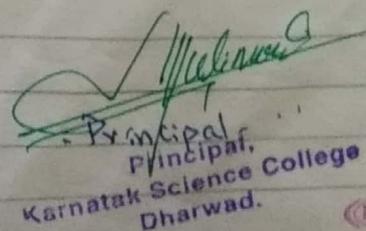 Principal,
Principal,
Karnatak Science College
Dharwad.